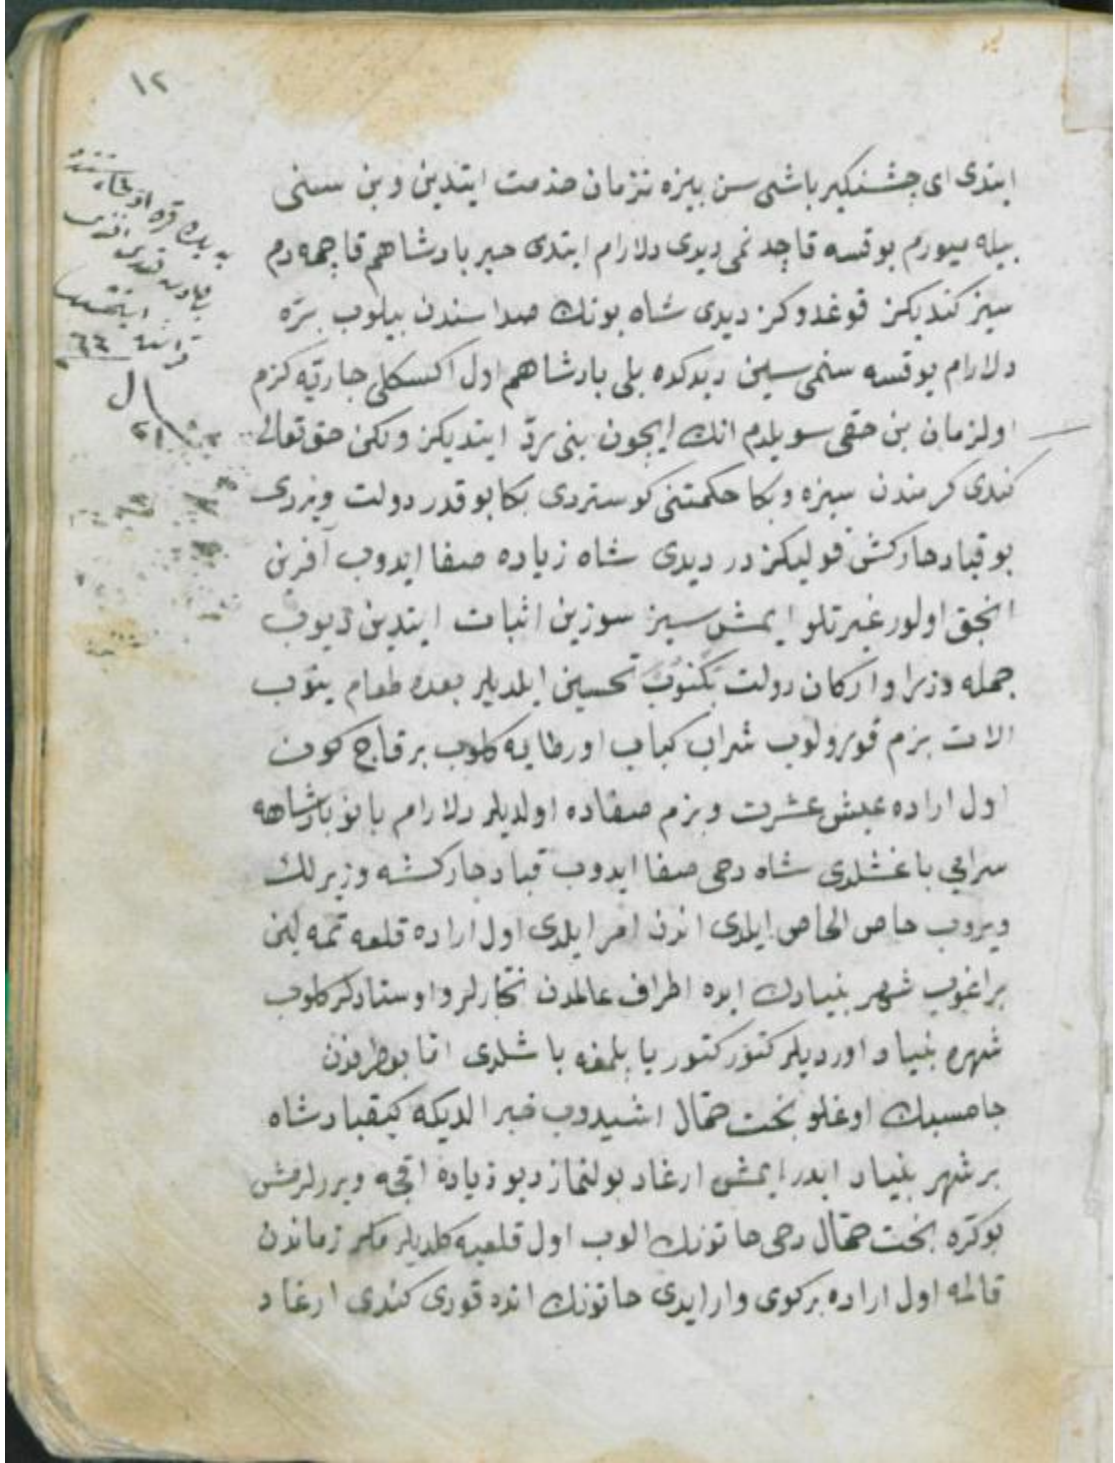 ١٢
ایتدی ای چشنکیر باشی سن بیزه نزمان خدمت ایتدین و بن سنی
بیله میورم یوقسه قاچدنمی دیدی دلارام ایتدی خیر پادشاهم قاچمه دم
سیز کندیکز قوغدوکز دیدی شاه بونك صداسندن بیلوب بره
دلارام یوقسه سنمی سین دیدکده بلی پادشاهم اول اکسکلی جاریه کزم
اولزمان بن حقی سویلدم انك ایچون بنی رد ایتدیکز ولکن حق تعالی
کندی کرمندن سیزه و بکا حکمتنی کوستردی بکا بوقدر دولت ویردی
بو قباد خارکش قولیکز در دیدی شاه زیاده صفا ایدوب آفرین
انجق اولور غیرتلو ایمش سیز سوزین اثبات ایتدین دیوب
جمله وزرا و ارکان دولت بکنوب تحسین ایلدیلر بعده طعام ینوب
الات بزم قورولوب شراب کباب اورطایه کلوب برقاج کون
اول اراده عیش عشرت و بزم صفاده اولدیلر دلارام بانو پادشاهه
سرایی باغشلدی شاه دخی صفا ایدوب قباد خارکشه وزیرلك
ویروب خاص الخاص ایلدی اندن امر ایلدی اول اراده قلعه تمه لین
براغوب شهر بنیادك ایده اطراف عالمدن نجارلر و اوستادلر کلوب
شهره بنیاد اوردیلر کتور کتور یاپلمغه باشلدی اما بو طرفدن
جامسبك اوغلو بخت جمال اشیدوب خبر الدیکه کیقباد شاه
بر شهر بنیاد ایدر ایمش ارغاد بولنماز دیو زیاده اقچه ویررلرمش
بوکره بخت جمال دخی خاتونك الوب اول قلعیه کلدیلر مکر زماندن
قالمه اول اراده بر کوی وار ایدی خاتونك انده قودی کندی ارغاد